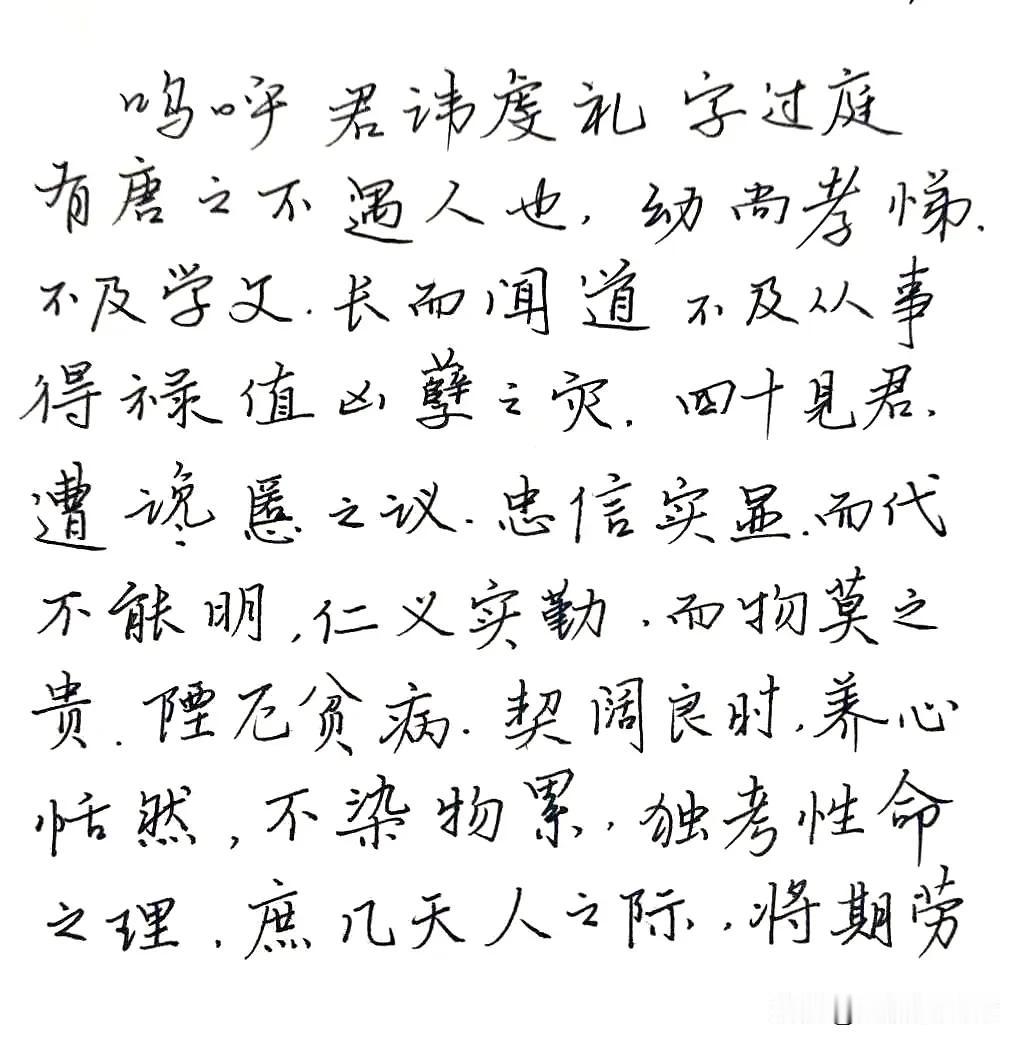 呜呼 君讳虔礼 字过庭
有唐之不遇人也，幼尚孝悌.
不及学文.长而闻道 不及从事
得禄值凶孽之灾.四十见君.
遭谗慝之议.忠信实显.而代
不能明,仁义实勤.而物莫之
贵.陻厄贫病.契阔良时,养心
恬然,不染物累,独考性命
之理.庶几天人之际,将期劳